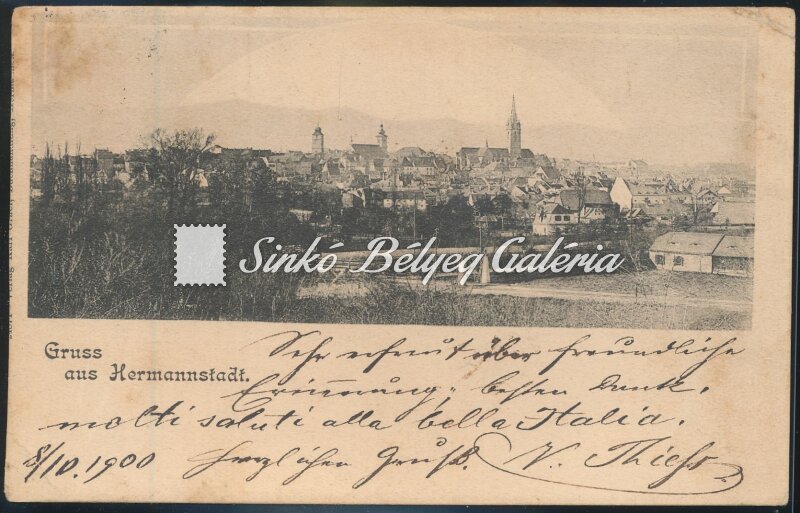 Sinkó Bélyeg Galéria
Gruss
aus Hermannstadt.
Sehr erfreut über freundliche
Erinnerung, besten Dank,
molti saluti alla bella Italia.
8/10.1900 Herzlichen Gruß. V. Thiess